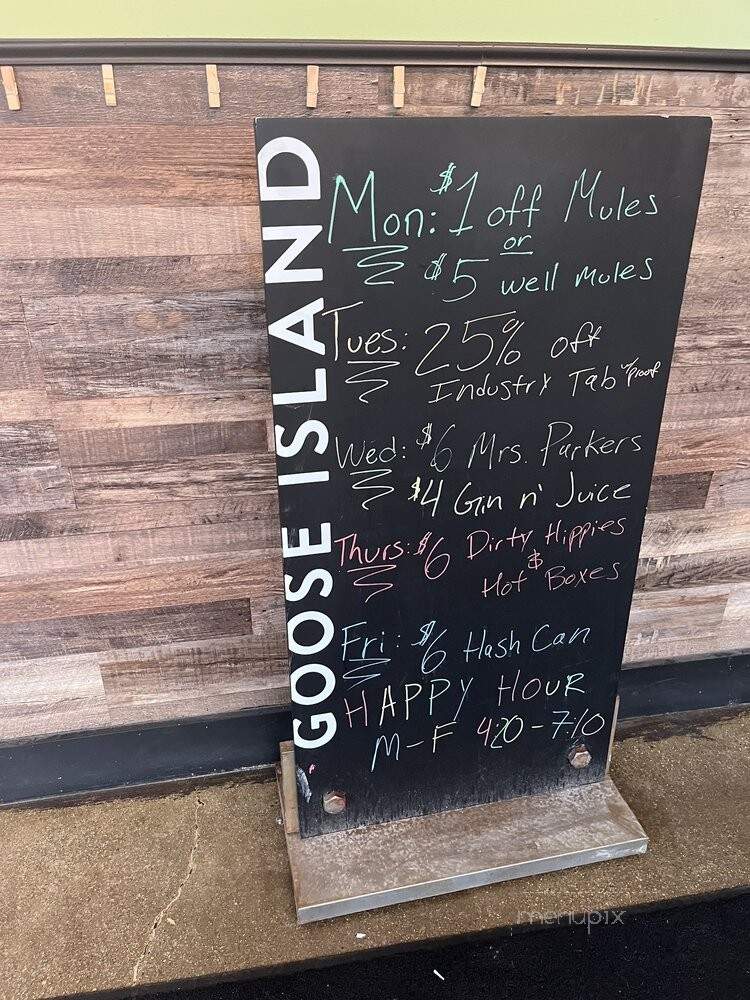 GOOSE ISLAND
Mon: $1 off Mules
or
$5 well mules
Tues: 25% off
Industry Tab w/proof
Wed: $6 Mrs. Parkers
$4 Gin n' Juice
Thurs: $6 Dirty Hippies
&
Hot Boxes
Fri: $6 Hash Can
HAPPY HOUR
M-F 4:20-7:10
menupix